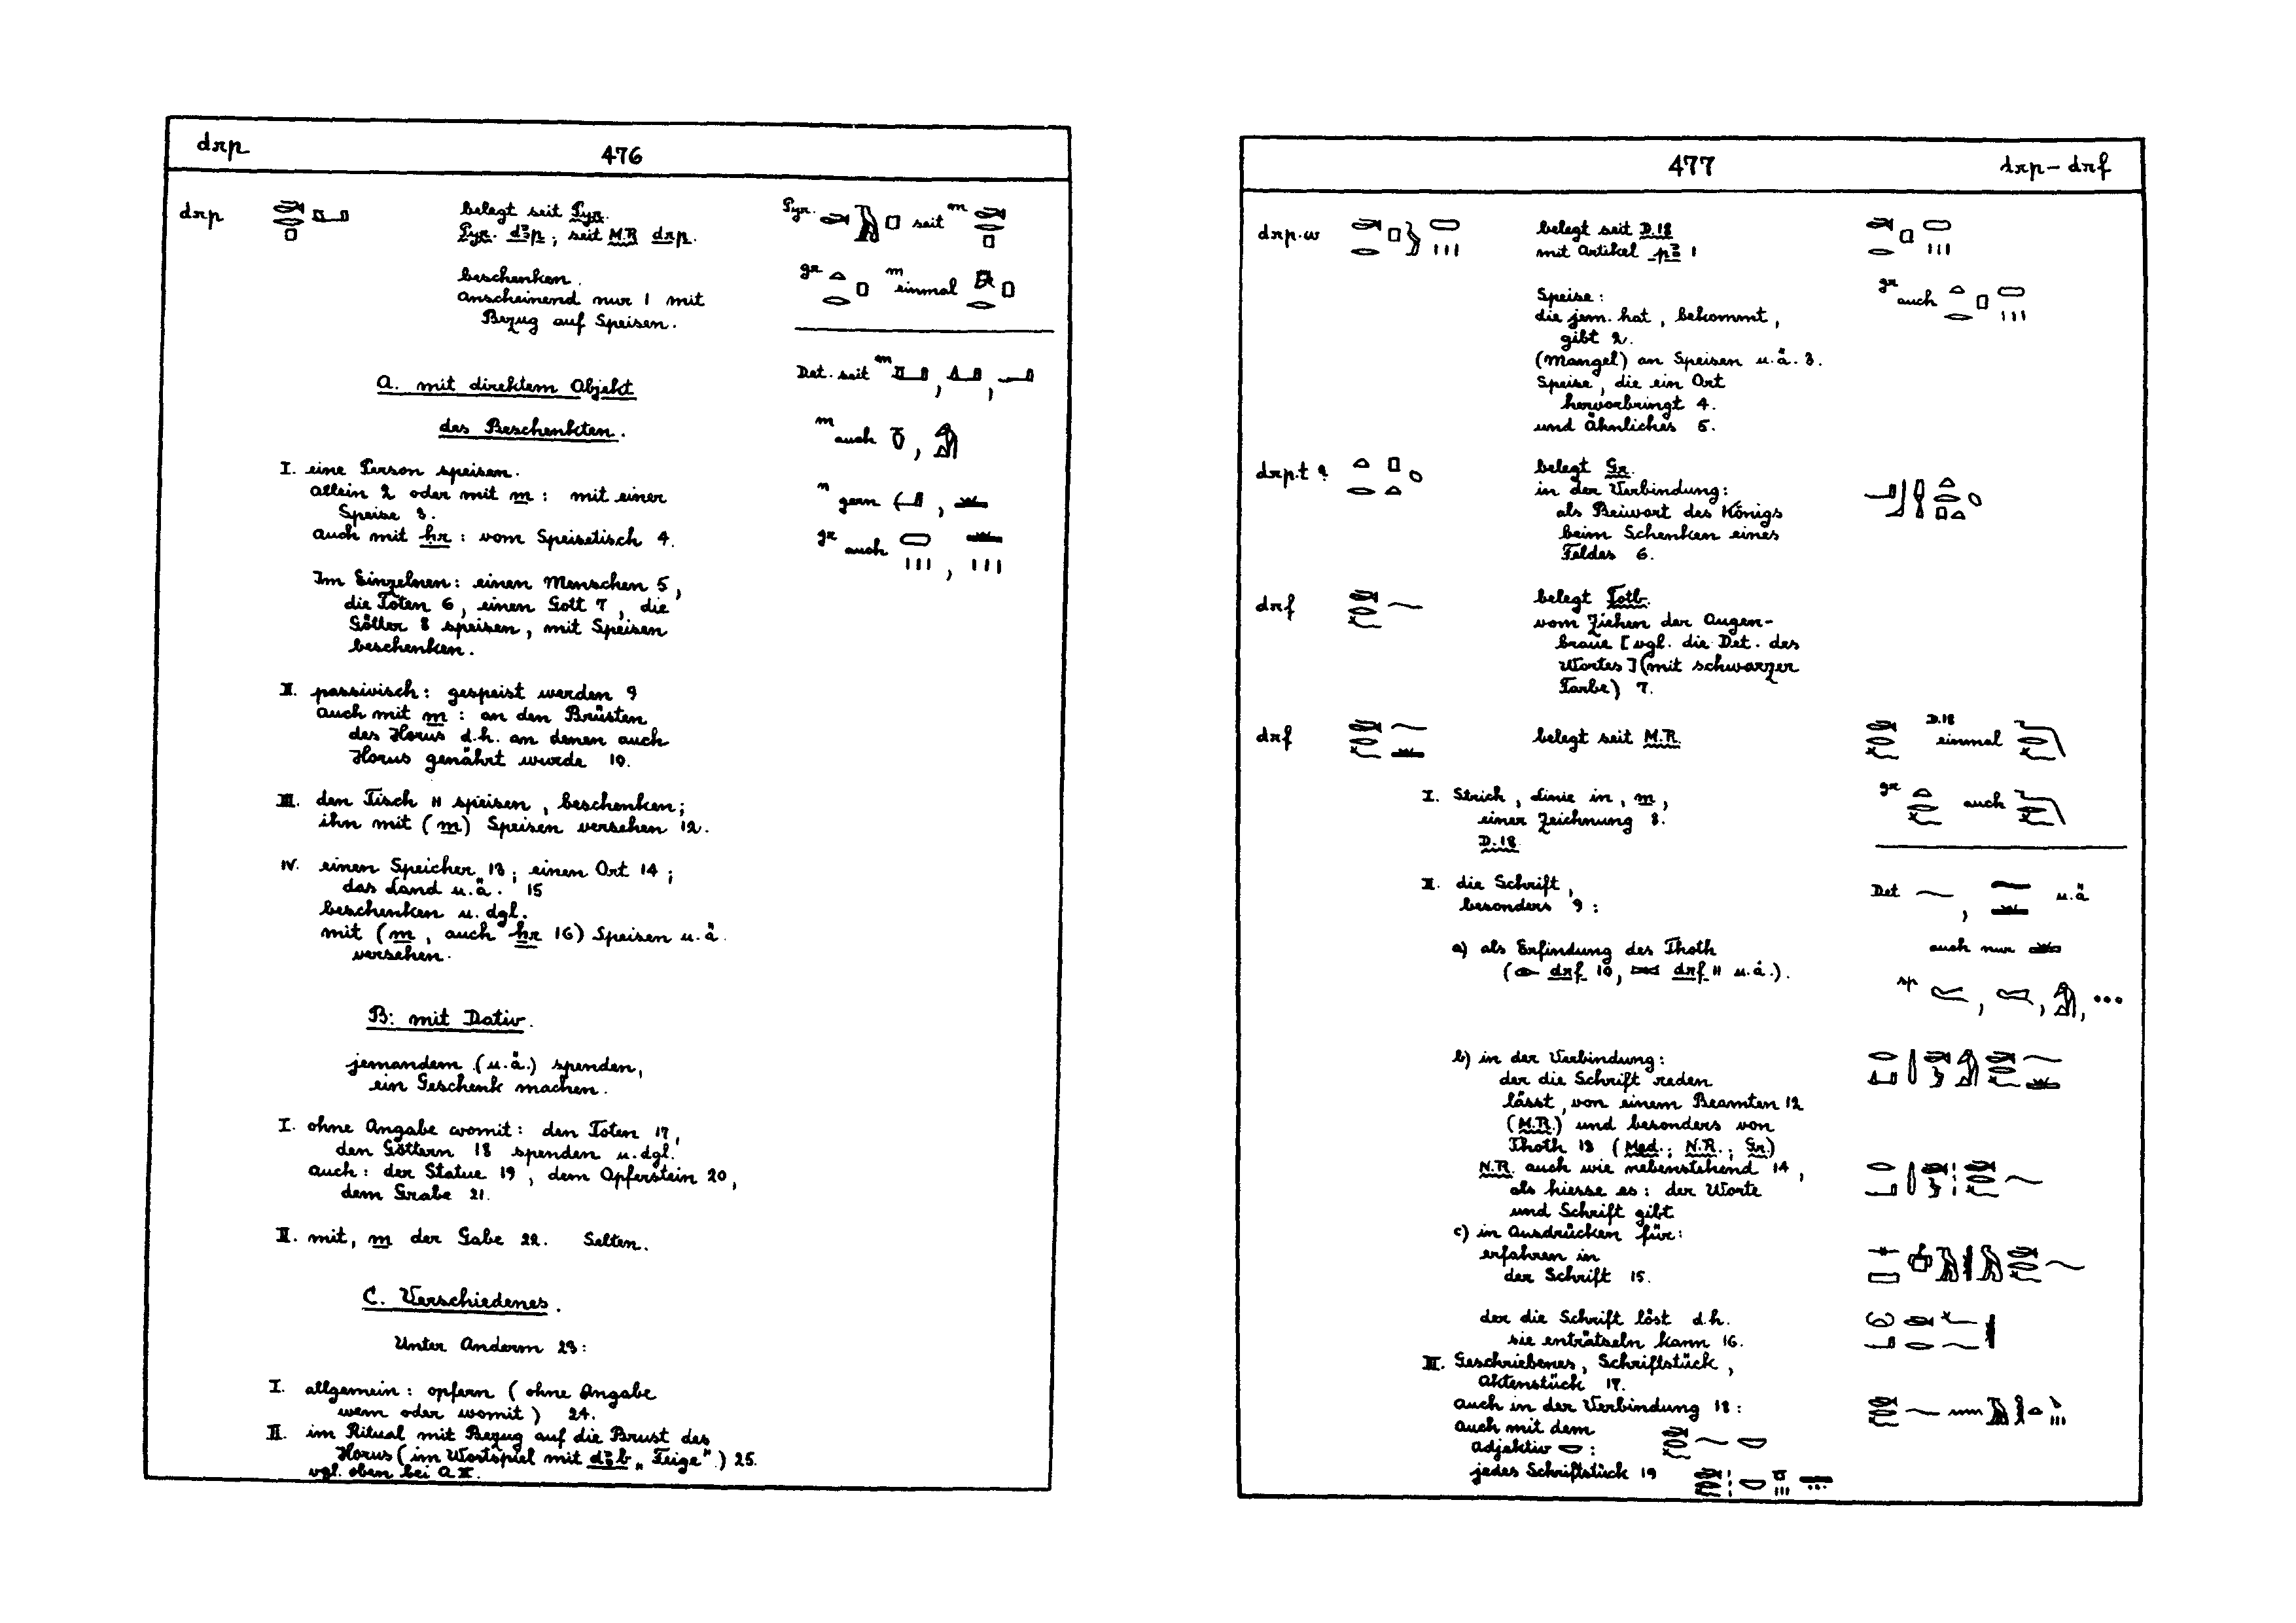 drp
476
drp
belegt seit Pyr.
Pyr. dꜣp; seit M.R. drp.
beschenken.
anscheinend nur 1 mit
Bezug auf Speisen.
Pyr. seit m
gr m einmal
Det. seit m , ,
m auch ,
n gern ,
gr auch ,
A. mit direktem Objekt
des Beschenkten.
I. eine Person speisen.
allein 2 oder mit m: mit einer
Speise 3.
auch mit ḥr: vom Speisetisch 4.
Im Einzelnen: einen Menschen 5,
die Toten 6, einen Gott 7, die
Götter 8 speisen, mit Speisen
beschenken.
II. passivisch: gespeist werden 9
auch mit m: an den Brüsten
des Horus d.h. an denen auch
Horus genährt wurde 10.
III. den Tisch 11 speisen, beschenken;
ihn mit (m) Speisen versehen 12.
IV. einen Speicher 13; einen Ort 14;
das Land u.ä. 15
beschenken u. dgl.
mit (m, auch ẖr 16) Speisen u.ä.
versehen.
B: mit Dativ.
jemandem (u.ä.) spenden,
ein Geschenk machen.
I. ohne Angabe womit: den Toten 17,
den Göttern 18 spenden u.dgl.
auch: der Statue 19, dem Opferstein 20,
dem Grabe 21.
II. mit, m der Gabe 22. Selten.
C. Verschiedenes.
Unter Anderm 23:
I. allgemein: opfern (ohne Angabe
wem oder womit) 24.
II. im Ritual mit Bezug auf die Brust des
Horus (im Wortspiel mit dꜣb „Feige“.) 25.
vgl. oben bei A II.
477
drp – drf
drp.w
belegt seit D.18
mit Artikel pꜣ 1
Speise:
die jem. hat, bekommt,
gibt 2.
(Mangel) an Speisen u.ä. 3.
Speise, die ein Ort
hervorbringt 4.
und Ähnliches 5.
gr auch
drp.t ?
belegt Gr.
in der Verbindung:
als Beiwort des Königs
beim Schenken eines
Feldes 6.
drf
belegt Totb.
vom Ziehen der Augen-
braue [vgl. die Det. des
Wortes] (mit schwarzer
Farbe) 7.
drf
belegt seit M.R.
D.18 einmal
gr auch
I. Strich, Linie in, m,
einer Zeichnung 8.
D.18.
II. die Schrift,
besonders 9:
Det , u.ä
auch nur
sp , , , ...
a) als Erfindung des Thoth
( drf 10, drf 11 u.ä.).
b) in der Verbindung:
der die Schrift reden
lässt, von einem Beamten 12
(M.R.) und besonders von
Thoth 13 (Med.; N.R.; Gr.)
N.R. auch wie nebenstehend 14,
als hiesse es: der Worte
und Schrift gibt
c) in Ausdrücken für:
erfahren in
der Schrift 15.
der die Schrift löst d.h.
sie enträtseln kann 16.
III. Geschriebenes, Schriftstück,
Aktenstück 17.
auch in der Verbindung 18:
auch mit dem
Adjektiv :
jedes Schriftstück 19